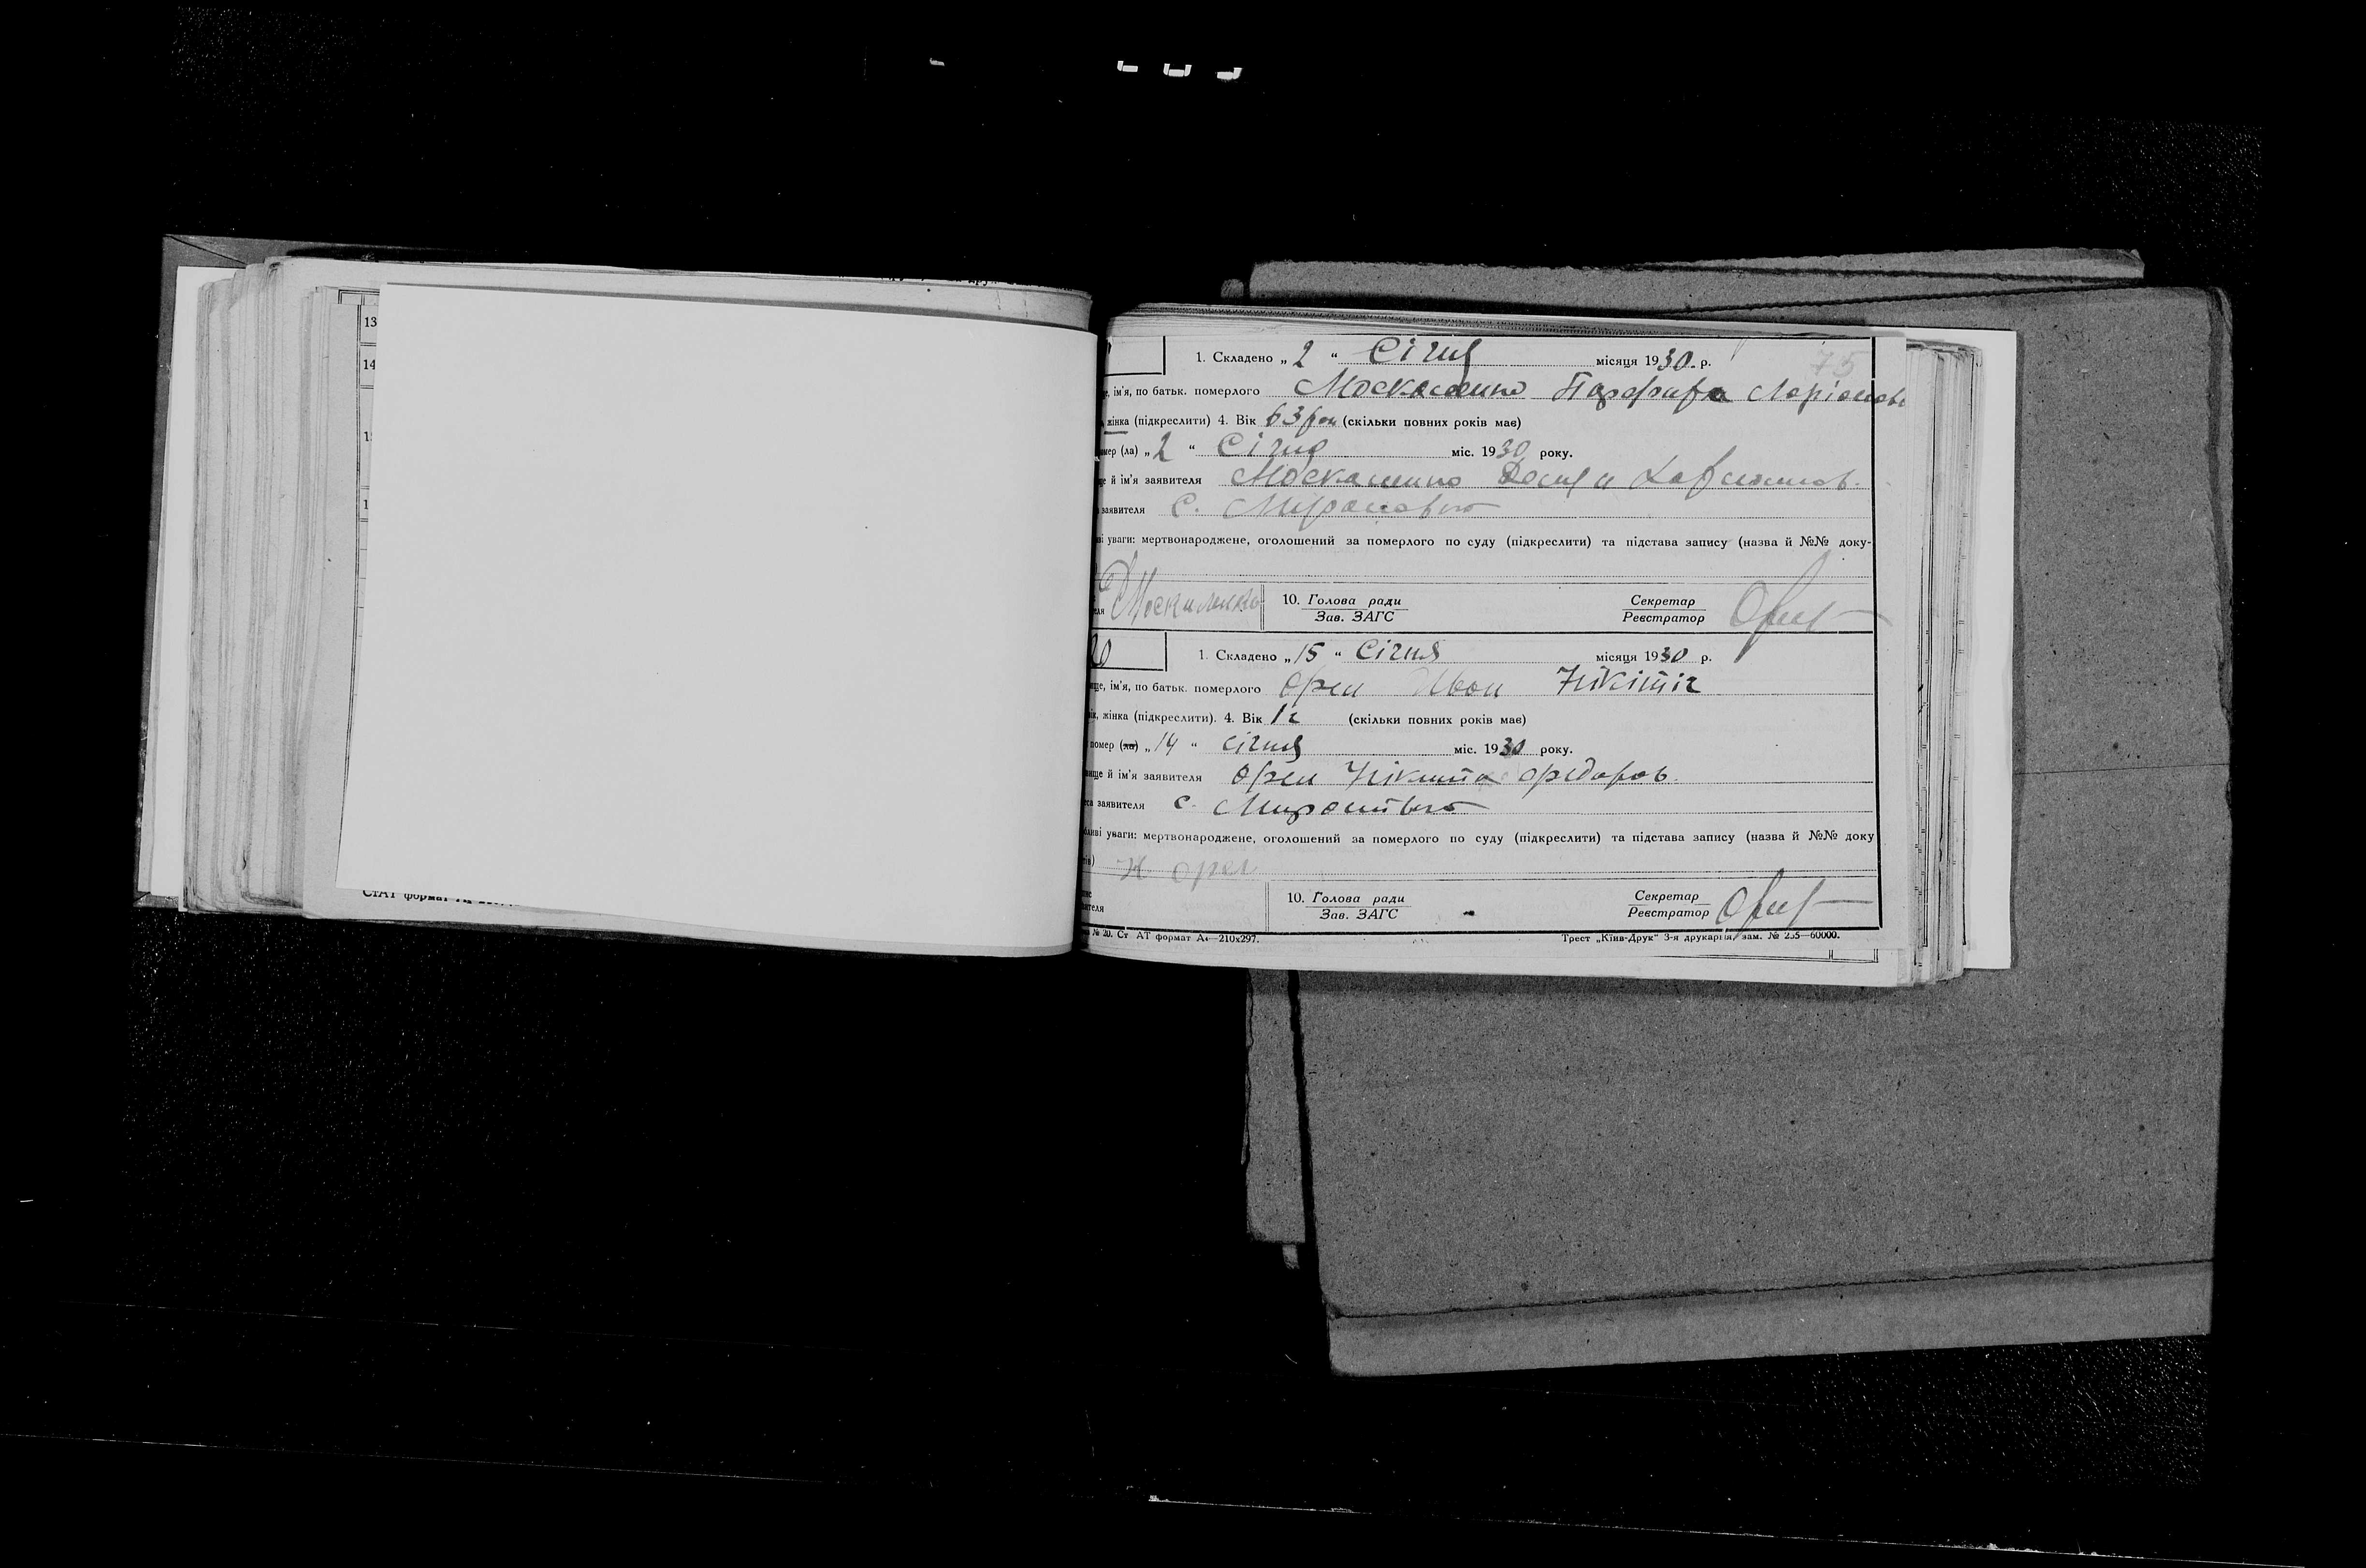 13
14
1. Складено „ 2 “ Січня місяця 1930. р.
75
ім'я, по батьк. померлого Москаленко
жінка (підкреслити) 4. Вік 63 (скільки повних років має)
мер (ла) „ 2 “ Січня міс. 1930 року.
й ім'я заявителя Москаленко
заявителя С.
уваги: мертвонароджене, оголошений за померлого по суду (підкреслити) та підстава запису (назва й №№ доку-
Москаленко
10. Голова ради
Зав. ЗАГС
Секретар
Реєстратор
1. Складено „ 15 “ Січня місяця 1930 р.
ім'я, по батьк. померлого Орел Иван Нікітіч
жінка (підкреслити). 4. Вік 1 г (скільки повних років має)
помер (ла) „ 14 “ січня міс. 1930 року.
й ім'я заявителя Орел Нікита Федоров
заявителя с.
уваги: мертвонароджене, оголошений за померлого по суду (підкреслити) та підстава запису (назва й №№ доку
Н Орел
10. Голова ради
Зав. ЗАГС
Секретар
Реєстратор
СтАТ формат
№ 20. Ст АТ формат А4—210х297.
Трест „Київ-Друк“ 3-я друкарня, зам. № 235—60000.